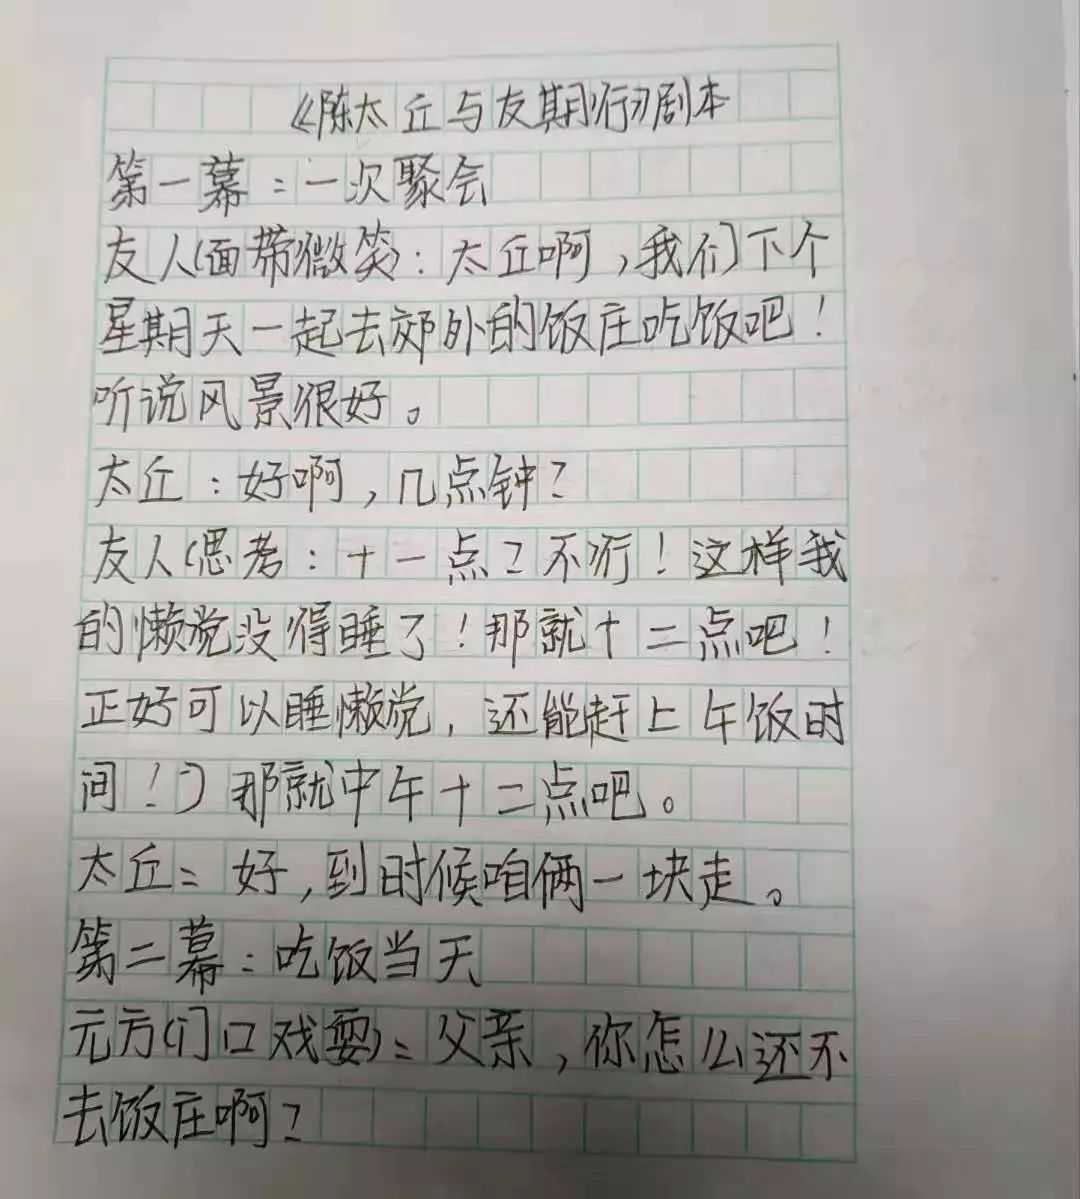 《陈太丘与友期行》剧本
第一幕：一次聚会
友人(面带微笑)：太丘啊，我们下个
星期天一起去郊外的饭庄吃饭吧！
听说风景很好。
太丘：好啊，几点钟？
友人(思考：十一点？不行！这样我
的懒觉没得睡了！那就十二点吧！
正好可以睡懒觉，还能赶上午饭时
间！)那就中午十二点吧。
太丘：好，到时候咱俩一块走。
第二幕：吃饭当天
元方(门口戏耍)：父亲，你怎么还不
去饭庄啊？